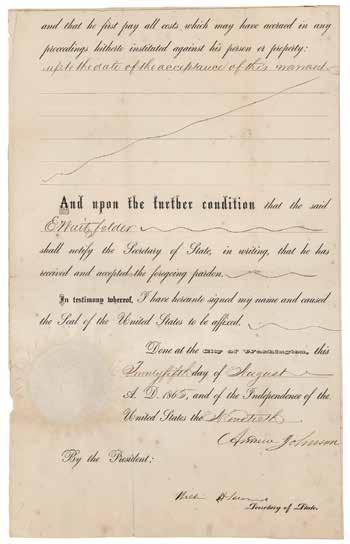 and that he first pay all costs which may have accrued in any
proceedings hitherto instituted against his person or property:
upto the date of the acceptance of this warrant
And upon the further condition that the said
E Waitzfelder
shall notify the Secretary of State, in writing, that he has
received and accepted the foregoing pardon.
In testimony whereof, I have hereunto signed my name and caused
the Seal of the United States to be affixed.
Done at the City of Washington, this
Twenty fifth day of August
A. D. 1865, and of the Independence of the
United States the Ninetieth
Andrew Johnson
By the President:
Secretary of State.